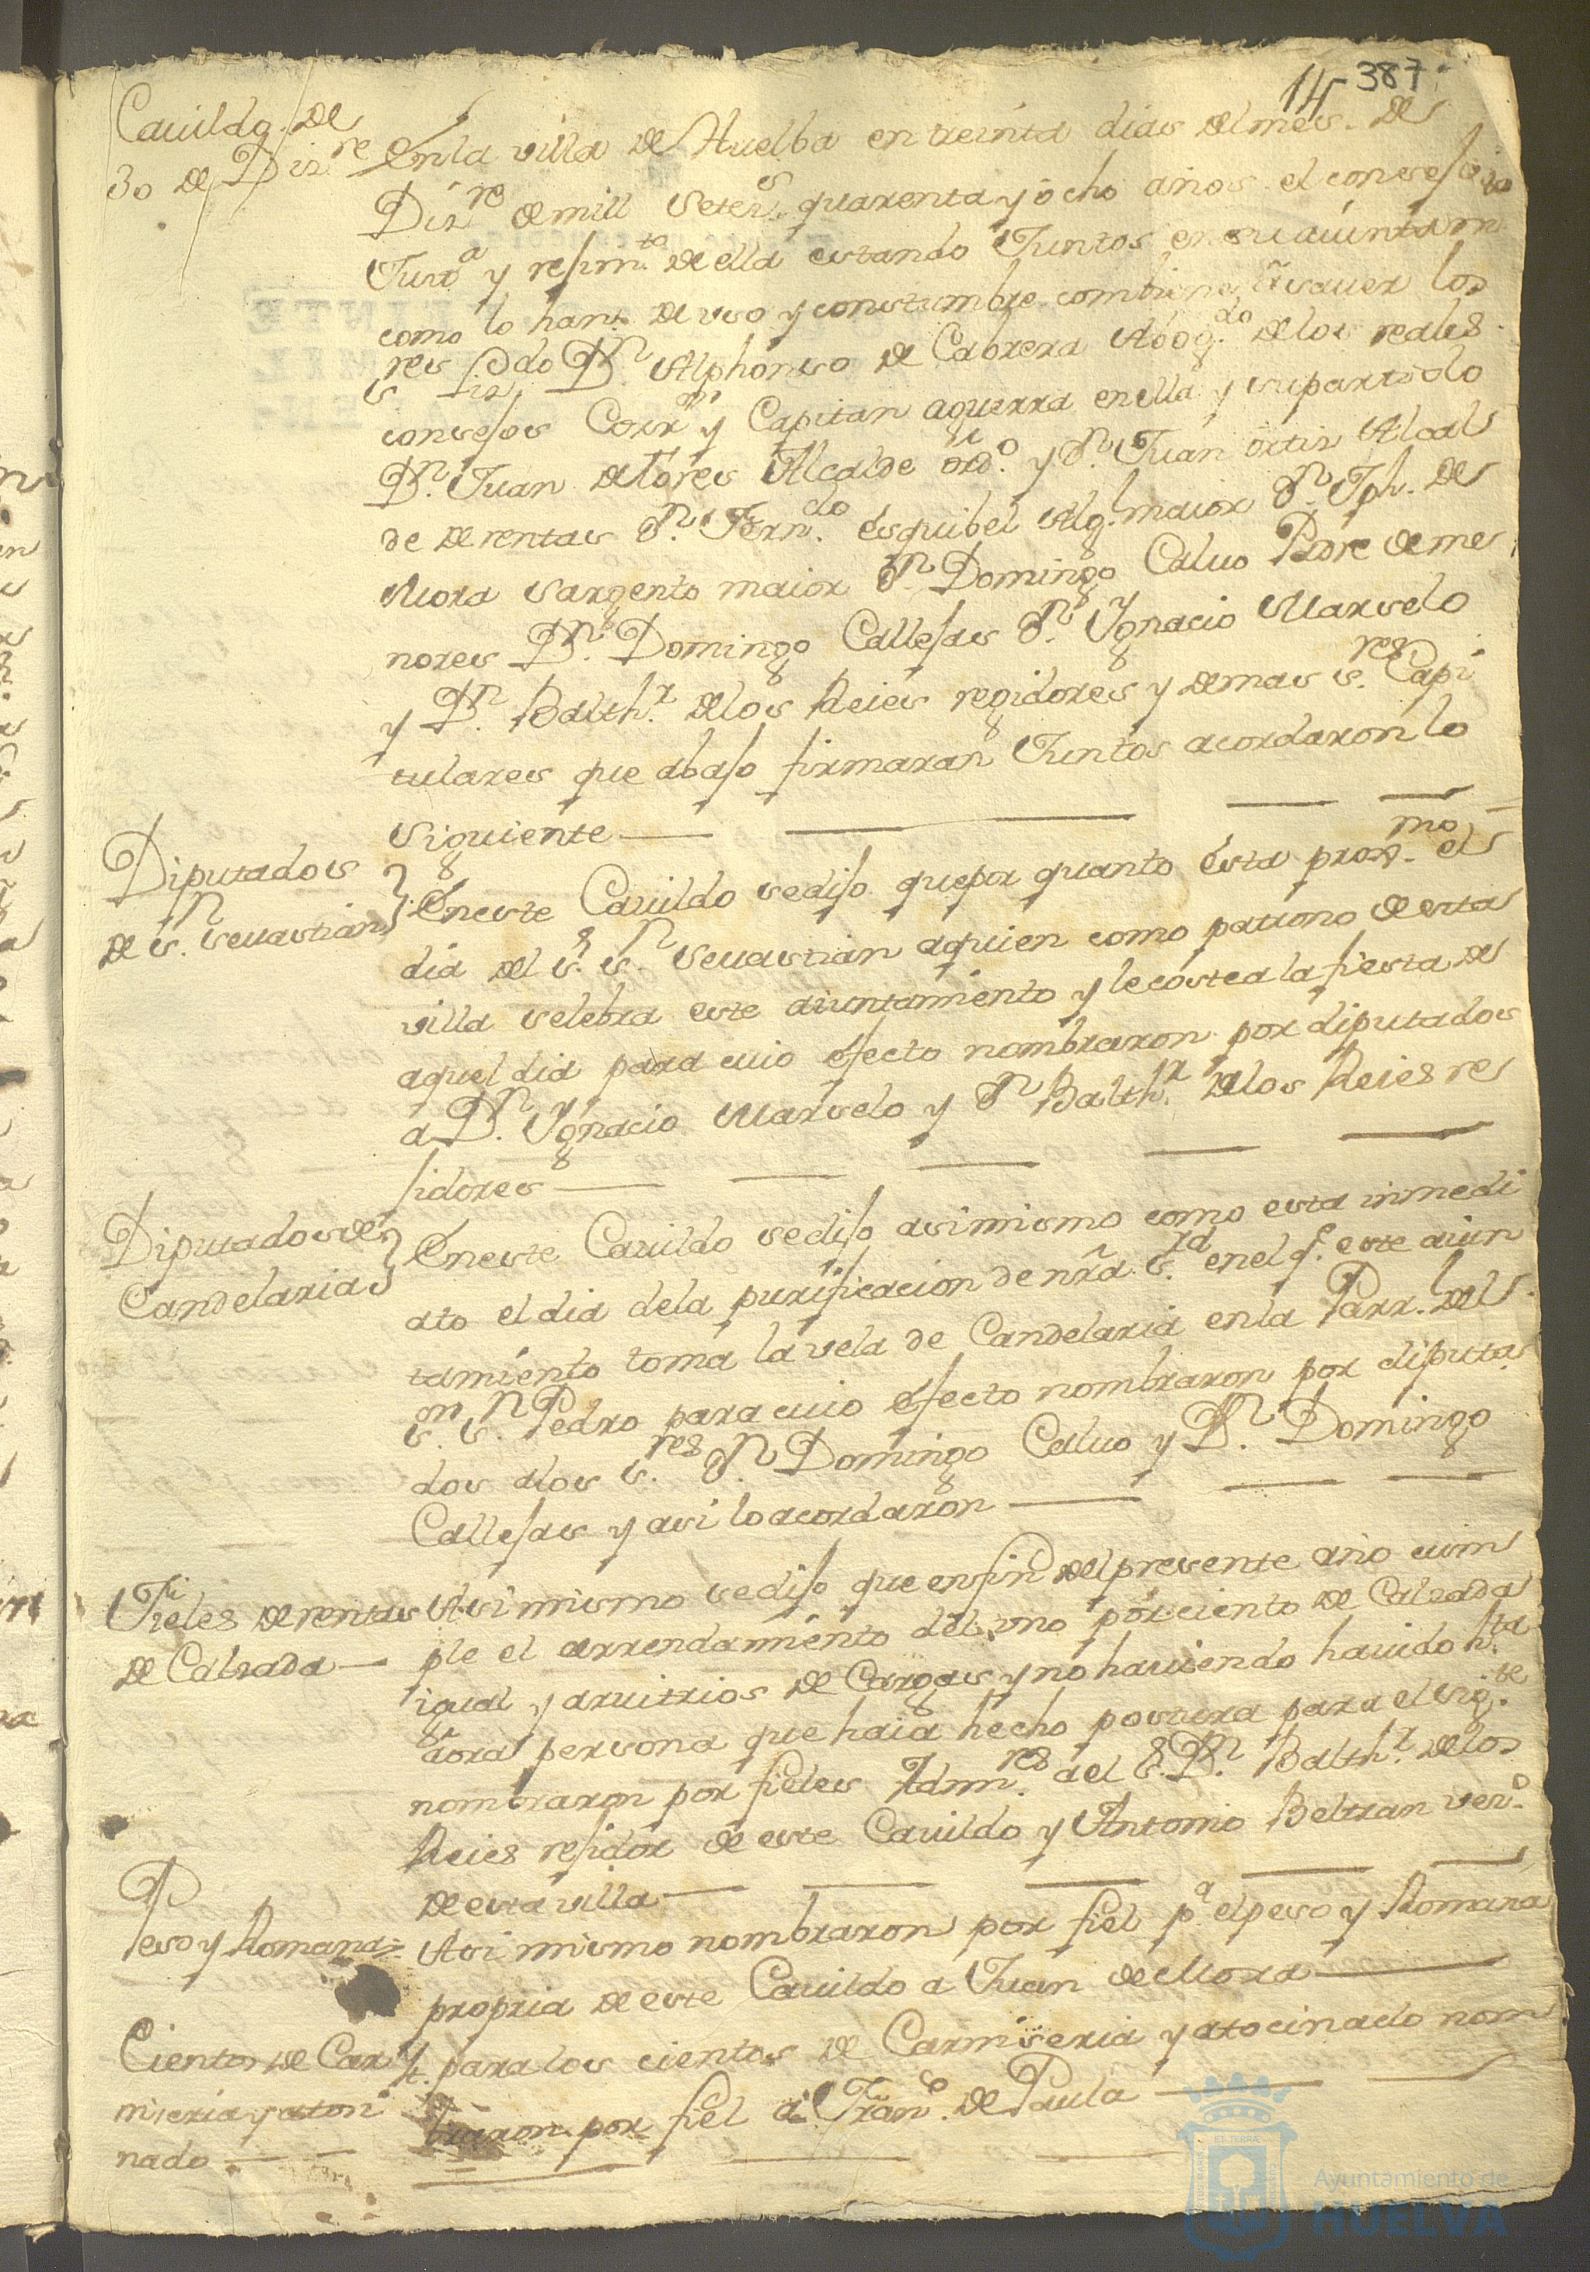 14 387
Cauildo de
30 de Diz.re
En la villa de Huelba en treinta dias del mes de
Diz.re de mill Setez.s quarenta y ocho años el consejo
Justz.a y rejim.to de ella estando Juntos en su aiuntam.to
como lo han de uso y constumbre combiene asauer los
s.res Lizdo D.n Alphonso de Cabrera Abog.do de los reales
consejos Corr.or y Capitan aguerra en ella y su partido
D.n Juan de Tores Alcalde ord.o y D.n Juan ortiz Alcal
de de rentas D.n Fern.do esquibel Alg.l maior D.n Jph. de
Mora Sargento maior D.n Domingo Caluo Padre de me
nores D.n Domingo Callejas D.n Ygnacio Marselo
y D.n Balth.r de los Reies regidores y demas s.res Capi
tulares que abajo firmaran Juntos acordaron lo
Siguiente
Diputados
de S.n Seuastian
En este Cauildo se dijo que por quanto esta prox.mo el
dia del S.r S.n Seuastian aquien como patrono de esta
villa selebra este aiuntamiento y le costea la fiesta de
aquel dia para cuio efecto nombraron por diputados
a D.n Ygnacio Marselo y D.n Balth.r de los Reies re
jidores
Diputados de
Candelaria
En este Cauildo se dijo asimismo como esta inmedi
ato el dia de la purificacion de nra. S.ra en el q.e este aiun
tamiento toma la vela de Candelaria en la Parr.l del
S.or S.n Pedro para cuio efecto nombraron por diputa
dos alos S.res D.n Domingo Caluo y D.n Domingo
Callejas y asi lo acordaron
Fieles de rentas
de Calzada
Asimismo se dijo que en fin del presente año cum
ple el arrendamiento del uno por ciento de Calzada
igual y aruitrios de Cargas y no hauiendo hauido h.ta
aora persona que haia hecho postura para el sig.te
nombraron por fieles Admn.res a el S.r D.n Balth.r de los
Reies rejidor de este Cauildo y Antonio Beltran vez.o
de esta villa
Peso y Romana
Asi mismo nombraron por fiel p.a el peso y Romana
propria de este Cauildo a Juan de Mora
Cientos de Car
niseria y atosi
nado
Y para los cientos de Carniseria y atocinado nom
braron por fiel a Fran.co de Paula
Ayuntamiento de
HUELVA